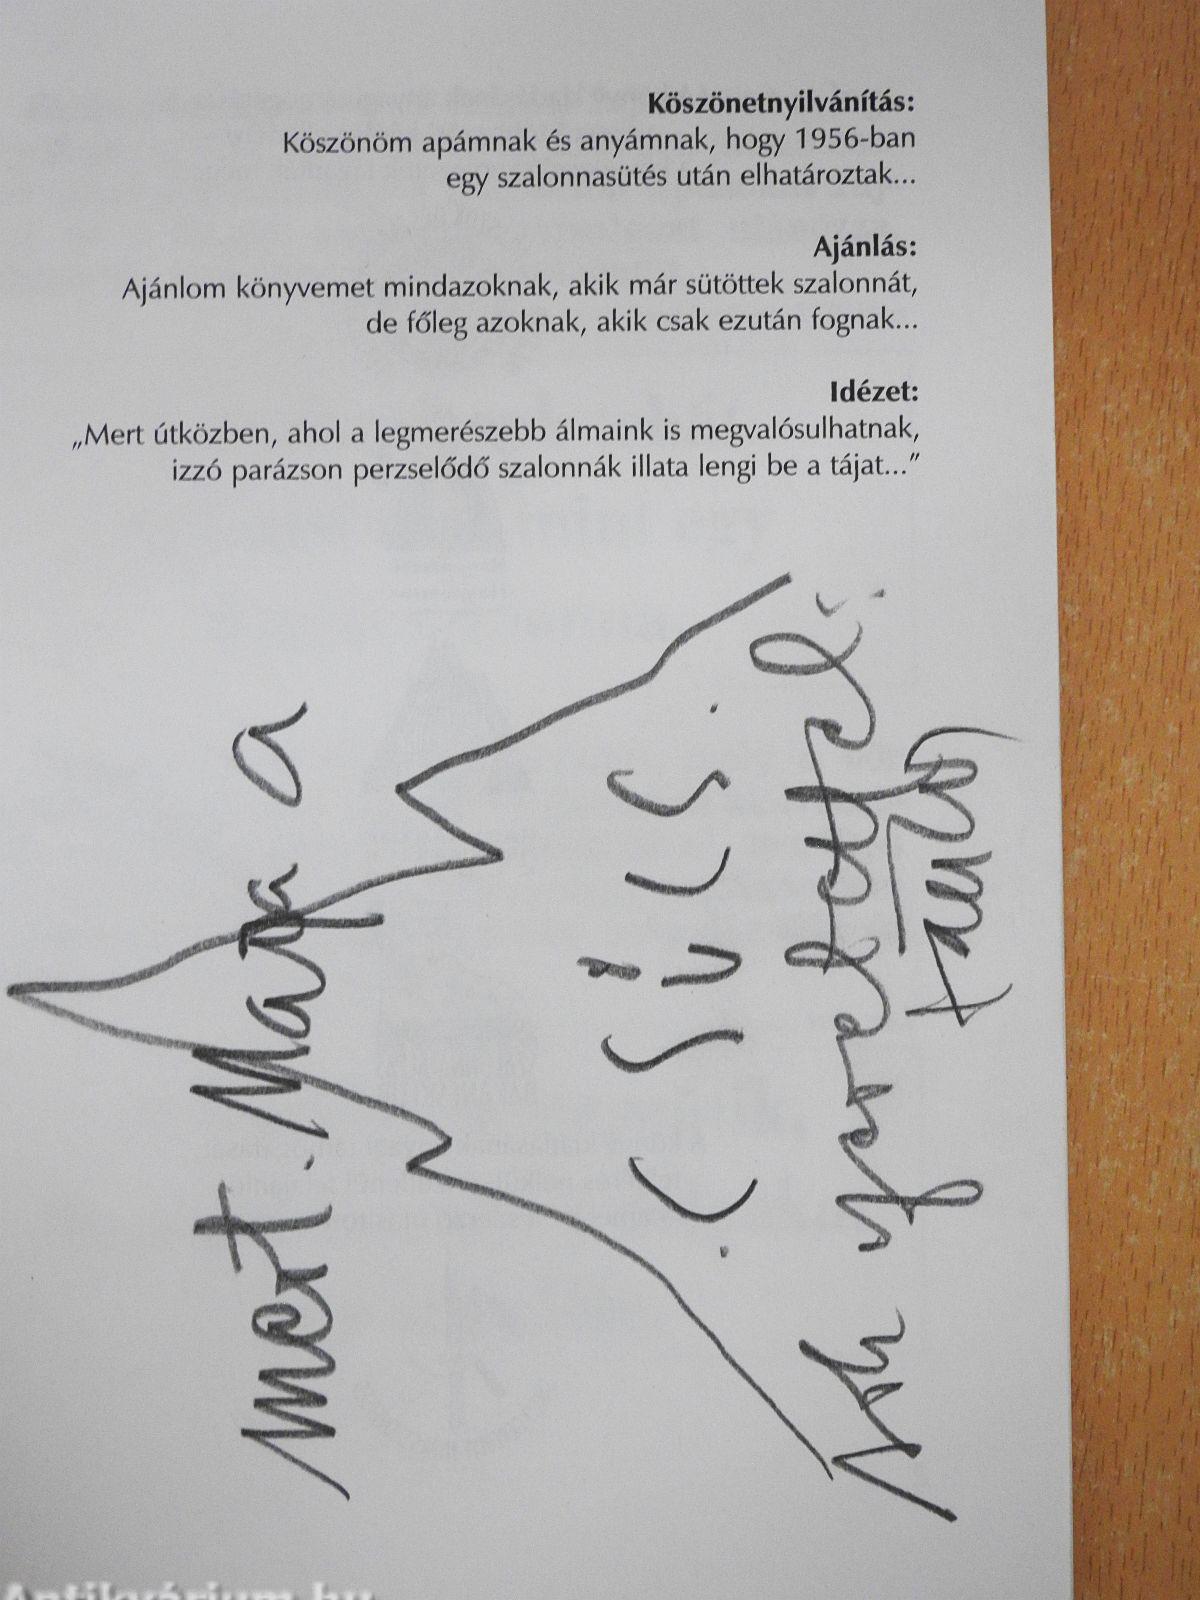 Köszönetnyilvánítás:
Köszönöm apámnak és anyámnak, hogy 1956-ban
egy szalonnasütés után elhatároztak...
Ajánlás:
Ajánlom könyvemet mindazoknak, akik már sütöttek szalonnát,
de főleg azoknak, akik csak ezután fognak...
Idézet:
„Mert útközben, ahol a legmerészebb álmaink is megvalósulhatnak,
izzó parázson perzselődő szalonnák illata lengi be a tájat...”
mert. a
. C S Ú C S .
szeretettel:
Antikvárium.hu